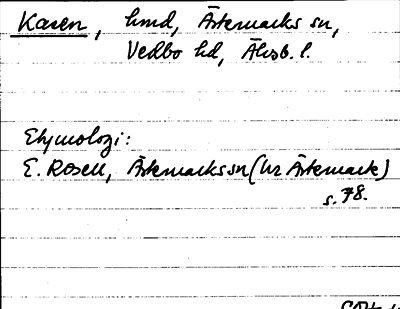 Kasen, hmd, Ärtemarks sn,
Vedbo hd, Älvsb. l.
Etymologi:
E. Rosell, Ärtemarks sn (hr Ärtemark)
s. 78.